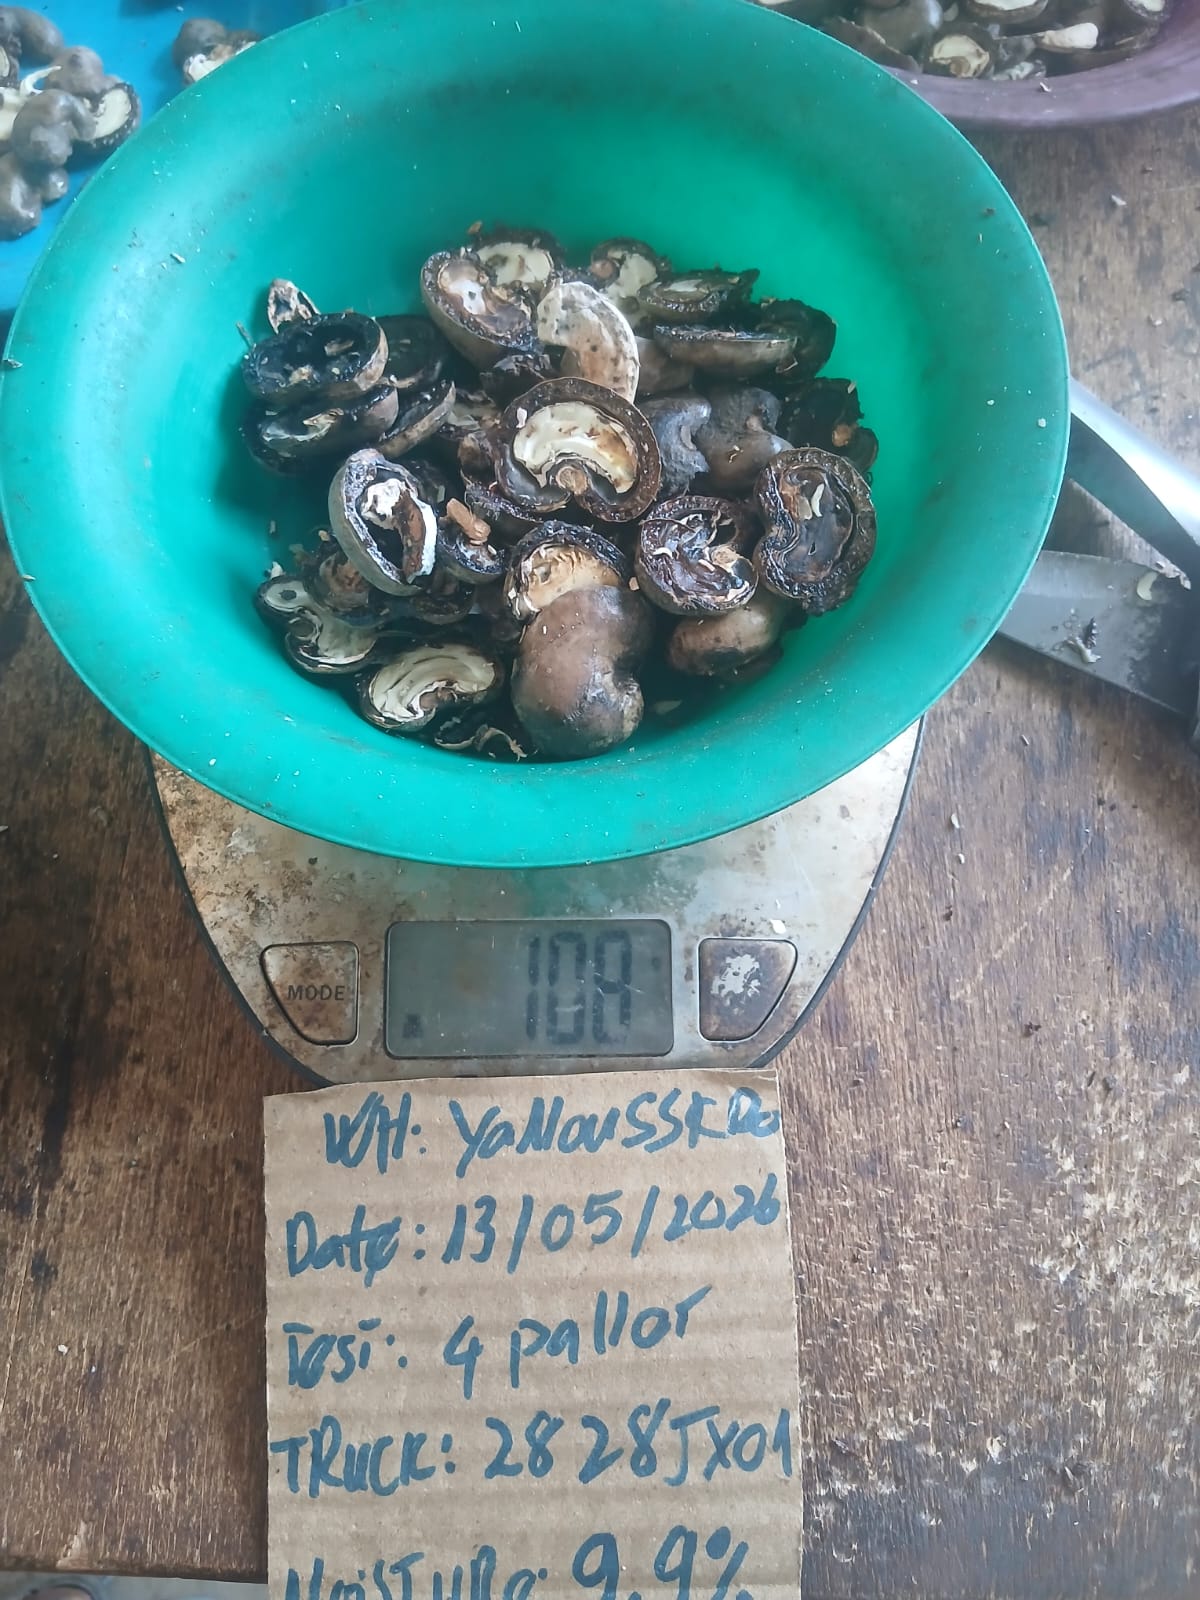 108
MODE
WH: YaMoussKRo
Date: 13/05/2026
Test: 4 pallot
TRUCK: 2828JX01
MoisTURe: 9.9%